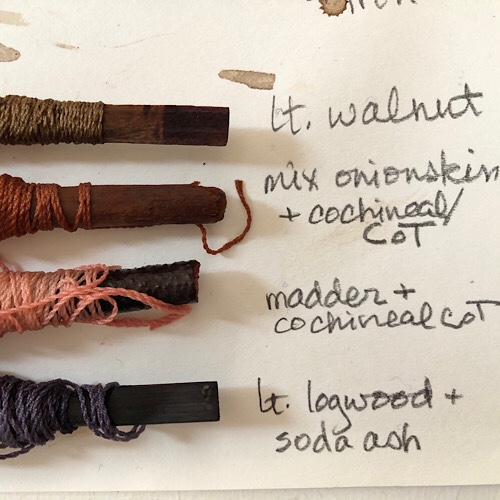 Lt. walnut
mix onionskin
+ cochineal/
CoT
madder +
cochineal CoT
Lt. logwood +
soda ash